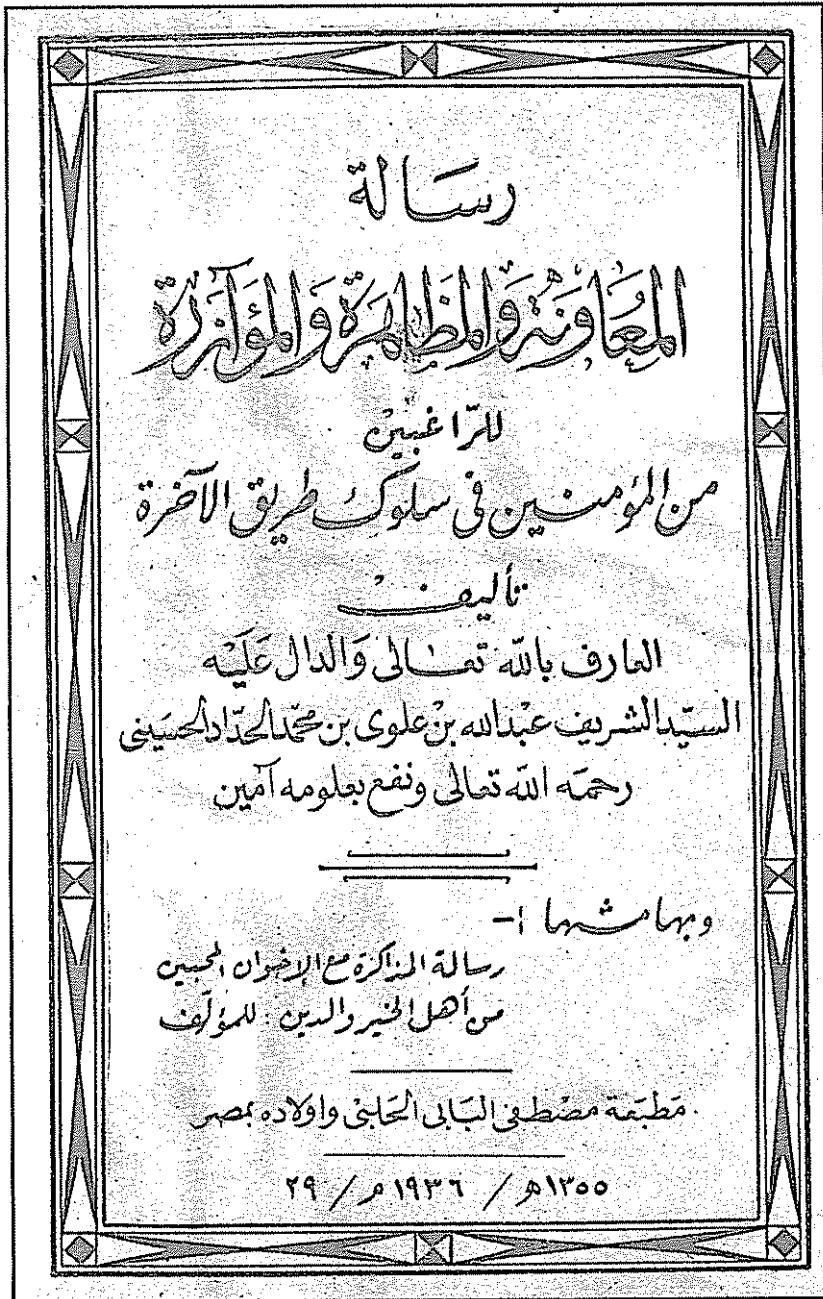 رسالة
المعاونة والمظاهرة والمؤازرة
للراغبين
من المؤمنين في سلوك طريق الآخرة
تأليف
العارف بالله تعالى والدال عليه
السيد الشريف عبد الله بن علوى بن محمد الحداد الحسينى
رحمه الله تعالى ونفع بعلومه آمين
وبهامشها :-
رسالة المذاكرة مع الإخوان المحبين
من أهل الخير والدين . للمؤلف
مطبعة مصطفى البابى الحلبى واولاده بمصر
١٣٥٥ھ / ١٩٣٦م / ٢٩